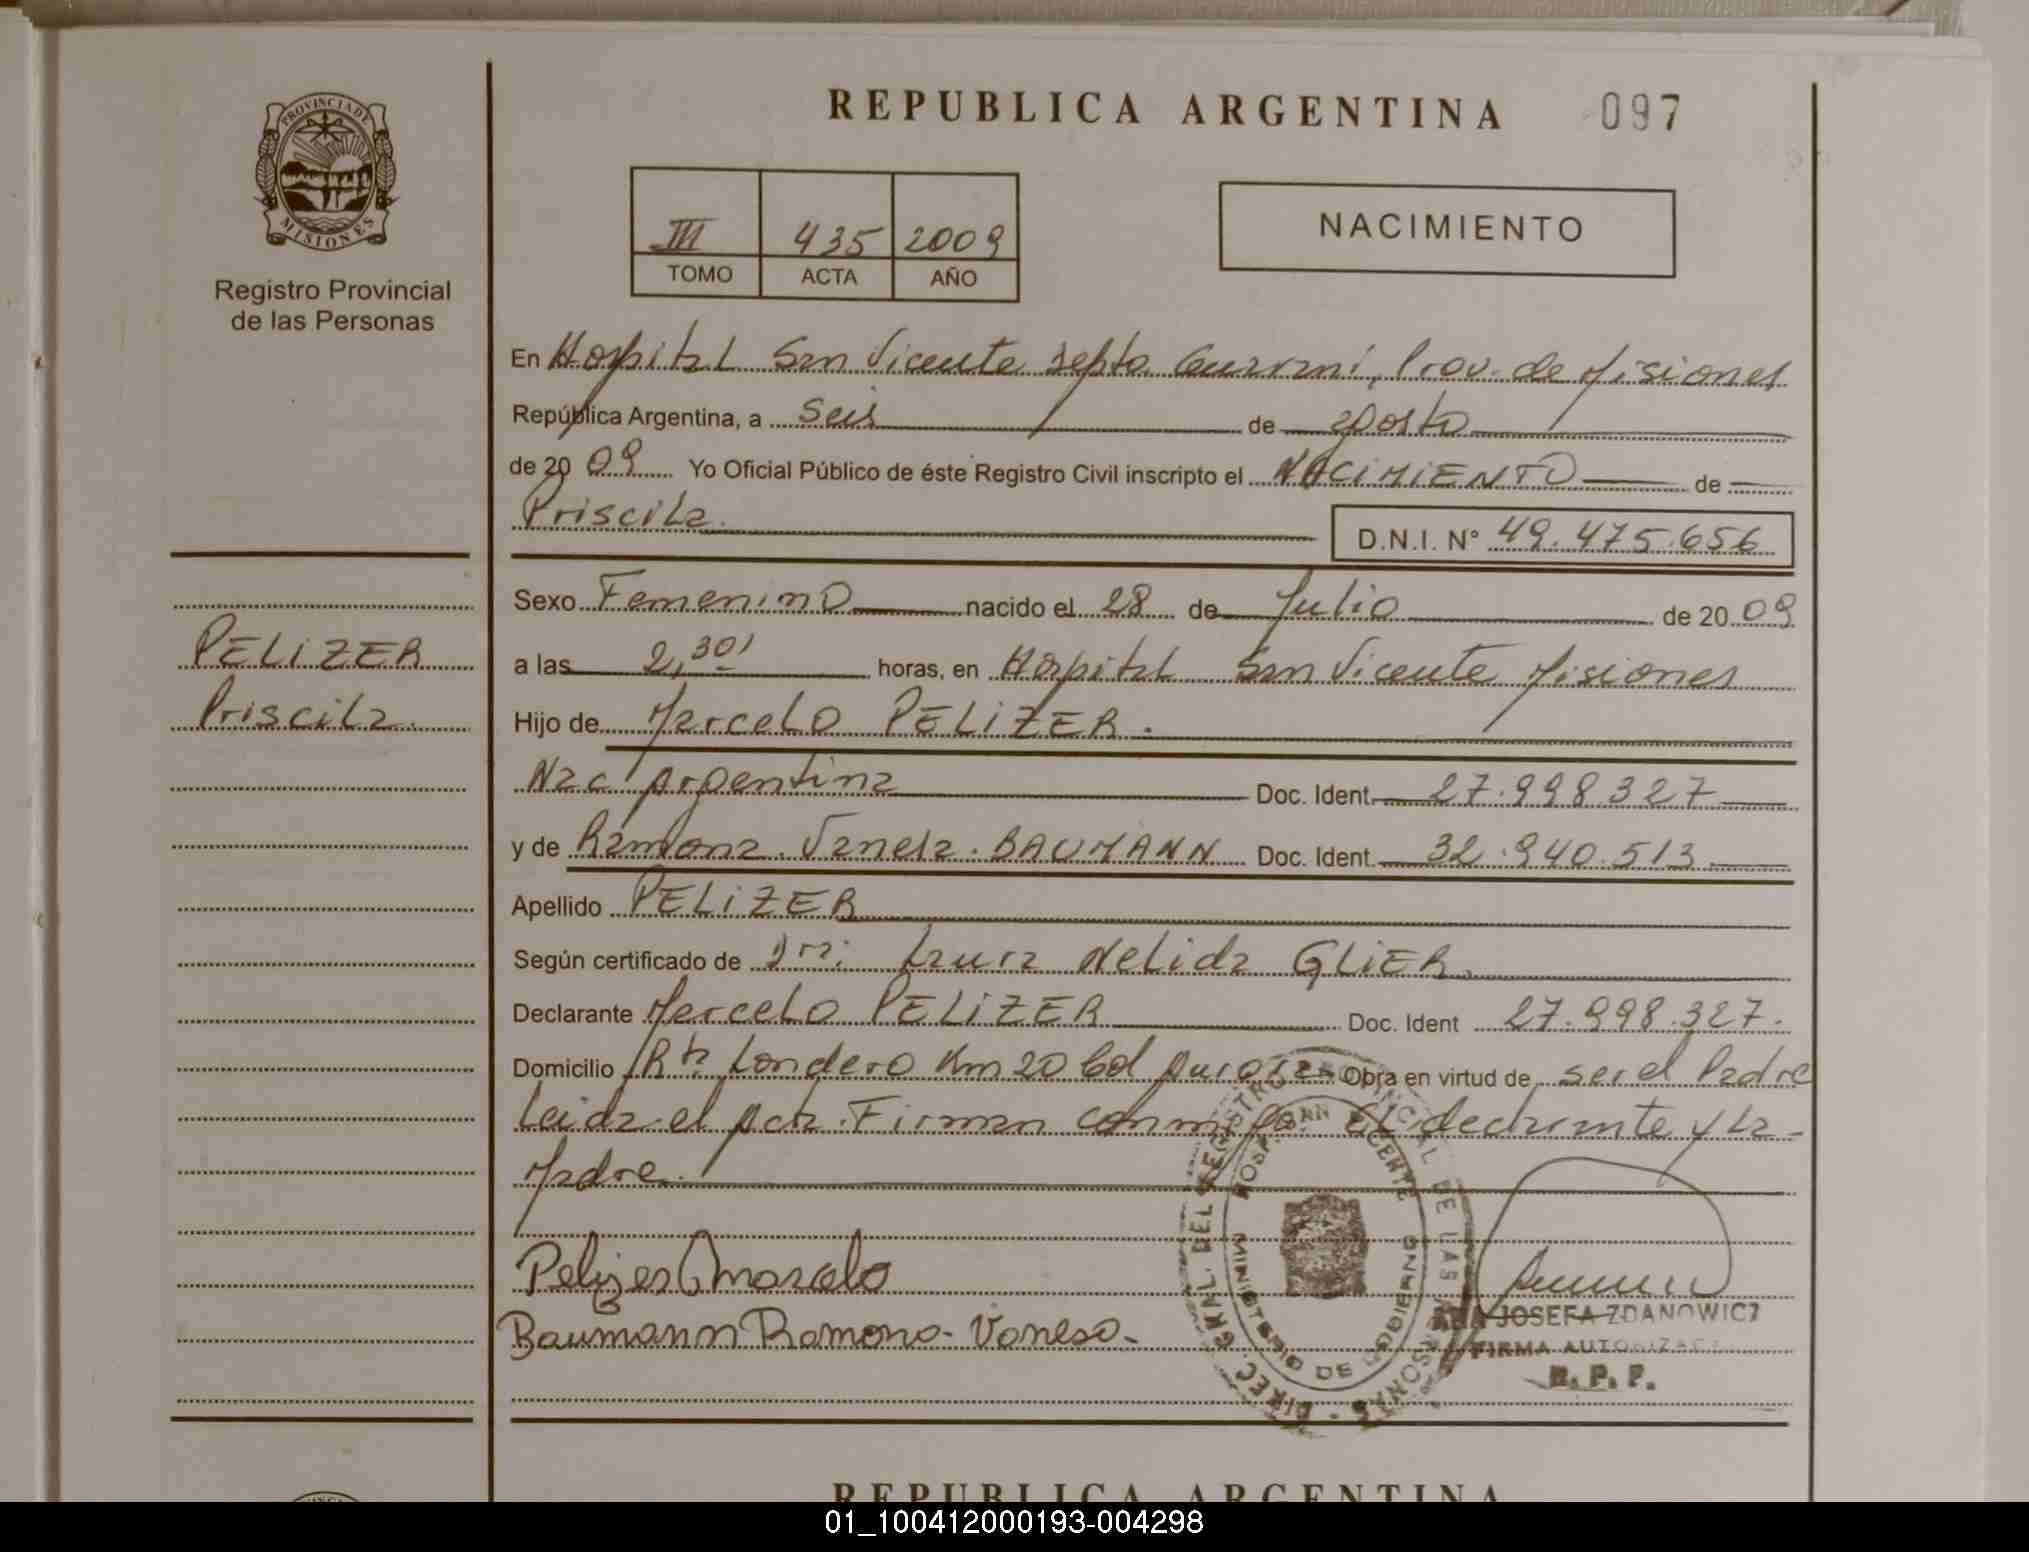 REPUBLICA ARGENTINA 097
PROVINCIA DE
MISIONES
Registro Provincial
de las Personas
III 435 2009
TOMO ACTA AÑO
NACIMIENTO
En Hospital San Vicente Depto Guarani, Prov. de Misiones
República Argentina, a seis de agosto
de 2009 Yo Oficial Público de éste Registro Civil inscripto el NACIMIENTO de
Priscila.
D.N.I. N° 49.475.656
Sexo Femenino nacido el 28 de Julio de 2009
a las 2,30' horas, en Hospital San Vicente Misiones
PELIZER
Priscila.
Hijo de Marcelo PELIZER.
Nac Argentina Doc. Ident. 27.998.327
y de Ramona. Vanesa. BAUMANN Doc. Ident. 32.940.513
Apellido PELIZER
Según certificado de Dra. Laura Nelida GLIER.
Declarante Marcelo PELIZER Doc. Ident 27.998.327.
Domicilio Rta. Londero Km 20 Col Aurora Obra en virtud de ser el Padre
Leida el Acta. Firman conmigo el declarante y la
Madre.
Pelizer Marcelo
Baumann Ramona-Vanesa-
DIREC. GRAL. DEL REGISTRO PROVINCIAL DE LAS PERSONAS
HOSP. SAN VICENTE
MINISTERIO DE GOBIERNO
ANA JOSEFA ZDANOWICZ
FIRMA AUTORIZADA
R. P. P.
REPUBLICA ARGENTINA
01_100412000193-004298